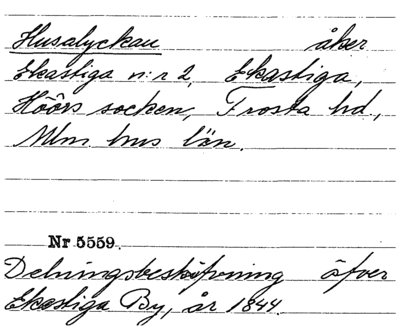 Husalyckan åker
Ekastiga n:r 2, Ekastiga,
Höörs socken, Frosta hd,
Mlm hus län.
Nr 5559.
Delningsbeskrifvning öfver
Ekastiga By, år 1844.